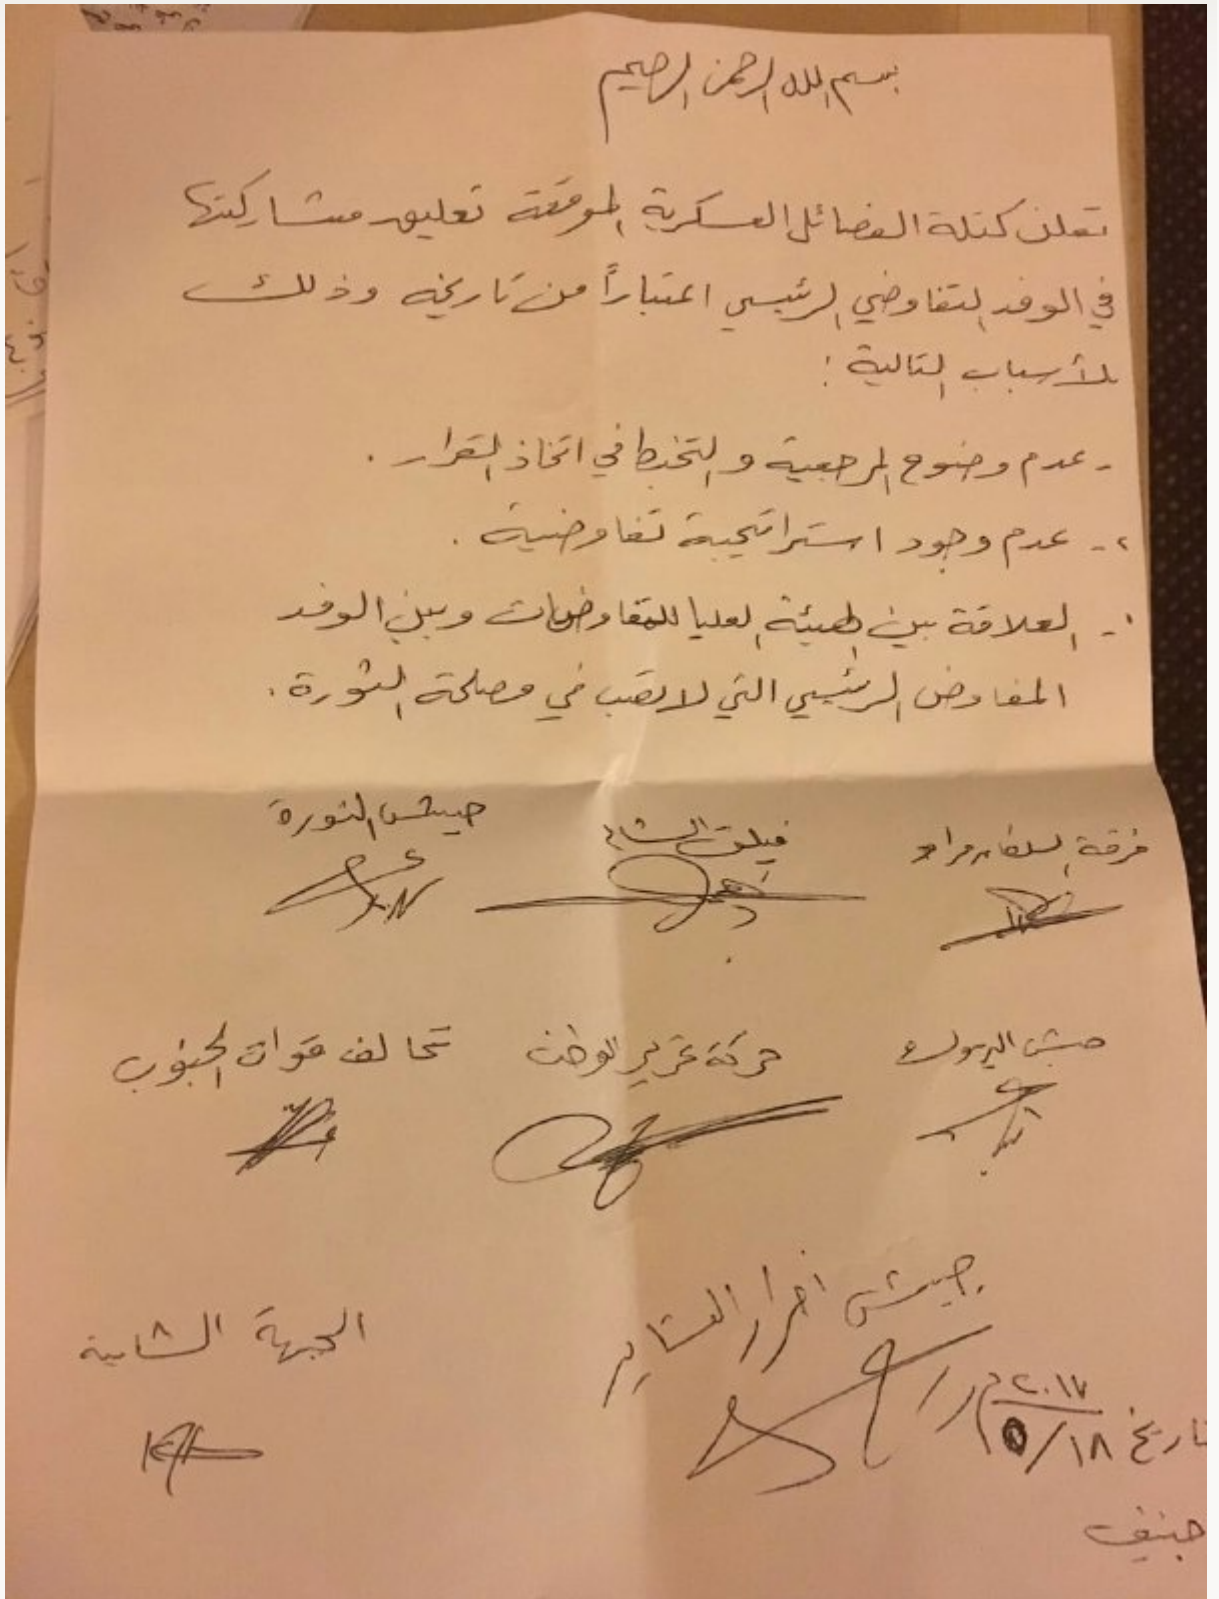 بسم الله الرحمن الرحيم
تعلن كتلة الفصائل العسكرية الموقعة تعليق مشاركتها
في الوفد التفاوضي الرئيسي اعتباراً من تاريخه وذلك
للأسباب التالية :
- عدم وضوح المرجعية و التخبط في اتخاذ القرار .
٢- عدم وجود استراتيجية تفاوضية .
١- العلاقة بين الهيئة العليا للمفاوضات وبين الوفد
المفاوض الرئيسي التي لا تصب في مصلحة الثورة .
فرقة السلطان مراد فيلق الشام جيش الثورة
جيش اليرموك حركة تحرير الوطن تحالف قوات الجنوب
جيش احرار العشاير
الجبهة الشامية
٢٠١٧
تاريخ ١٨/٥
جنيف